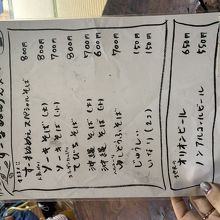 スペシャルそば 800円
ソーキそば(大) 800円
ソーキそば(小) 700円
てびちそば 800円
沖縄そば(大) 700円
沖縄そば(小) 600円
ゆしどうふそば 700円
じゅーしー 150円
いなり(2コ) 150円
オリオンビール 650円
ノンアルコールビール 550円